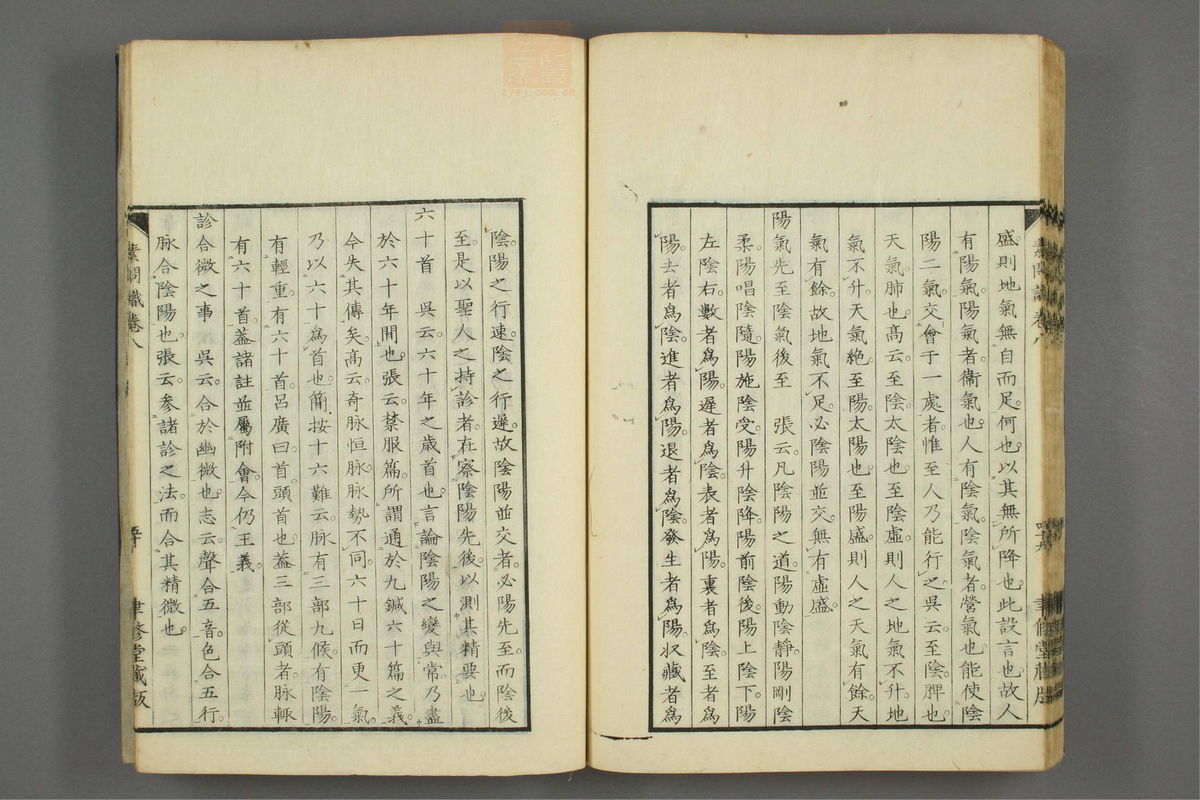 盛則地氣無自而足何也以其無所降也此設言也故人
有陽氣陽氣者衞氣也人有陰氣陰氣者營氣也能使陰
陽二氣交會于一處者惟至人乃能行之吳云至陰脾也
天氣肺也高云至陰太陰也至陰虛則人之地氣不升地
氣不升天氣絶至陽太陽也至陽盛則人之天氣有餘天
氣有餘故地氣不足必陰陽並交無有虛盛
陽氣先至陰氣後至 張云凡陰陽之道陽動陰靜陽剛陰
柔陽唱陰隨陽施陰受陽升陰降陽前陰後陽上陰下陽
左陰右數者爲陽遲者爲陰表者爲陽裏者爲陰至者爲
陽去者爲陰進者爲陽退者爲陰發生者爲陽收藏者爲
素問識卷八
聿修堂藏版
陰陽之行速陰之行遲故陰陽並交者必陽先至而陰後
至是以聖人之持診者在察陰陽先後以測其精要也
六十首 吳云六十年之歲首也言論陰陽之變與常乃盡
於六十年間也張云禁服篇所謂通於九鍼六十篇之義
今失其傳矣高云奇脉恒脉脉勢不同六十日而更一氣
乃以六十爲首也簡按十六難云脉有三部九候有陰陽
有輕重有六十首呂廣曰首頭首也葢三部從頭者脉輒
有六十首葢諸註並屬附會今仍王義
診合微之事 吳云合於幽微也志云聲合五音色合五行
脉合陰陽也張云参諸診之法而合其精微也
素問識卷八
聿修堂藏版
zysj.com.cn